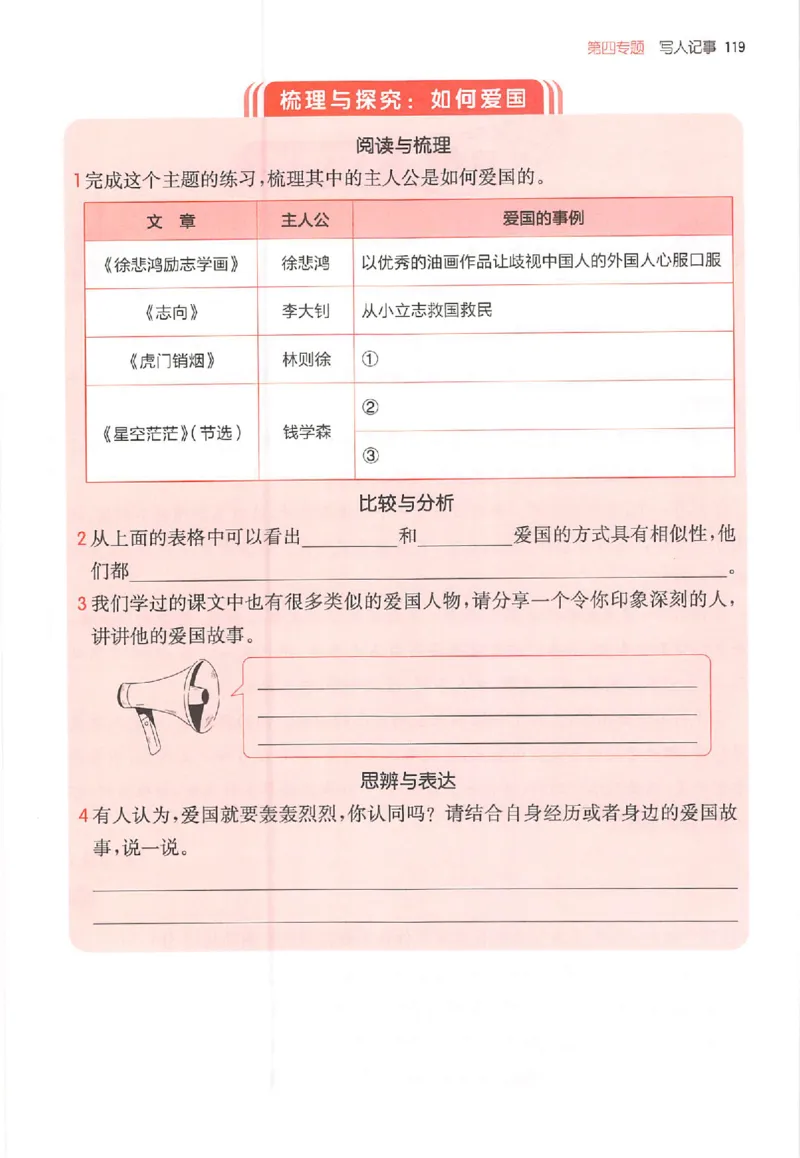 第四专题 写人记事 119
梳理与探究：如何爱国
阅读与梳理
1 完成这个主题的练习,梳理其中的主人公是如何爱国的。
文 章 主人公 爱国的事例
《徐悲鸿励志学画》 徐悲鸿 以优秀的油画作品让歧视中国人的外国人心服口服
《志向》 李大钊 从小立志救国救民
《虎门销烟》 林则徐 ①
《星空茫茫》(节选) 钱学森 ②
③
比较与分析
2 从上面的表格中可以看出__________和__________爱国的方式具有相似性,他
们都____________________。
3 我们学过的课文中也有很多类似的爱国人物,请分享一个令你印象深刻的人,
讲讲他的爱国故事。
思辨与表达
4 有人认为,爱国就要轰轰烈烈,你认同吗？请结合自身经历或者身边的爱国故
事,说一说。